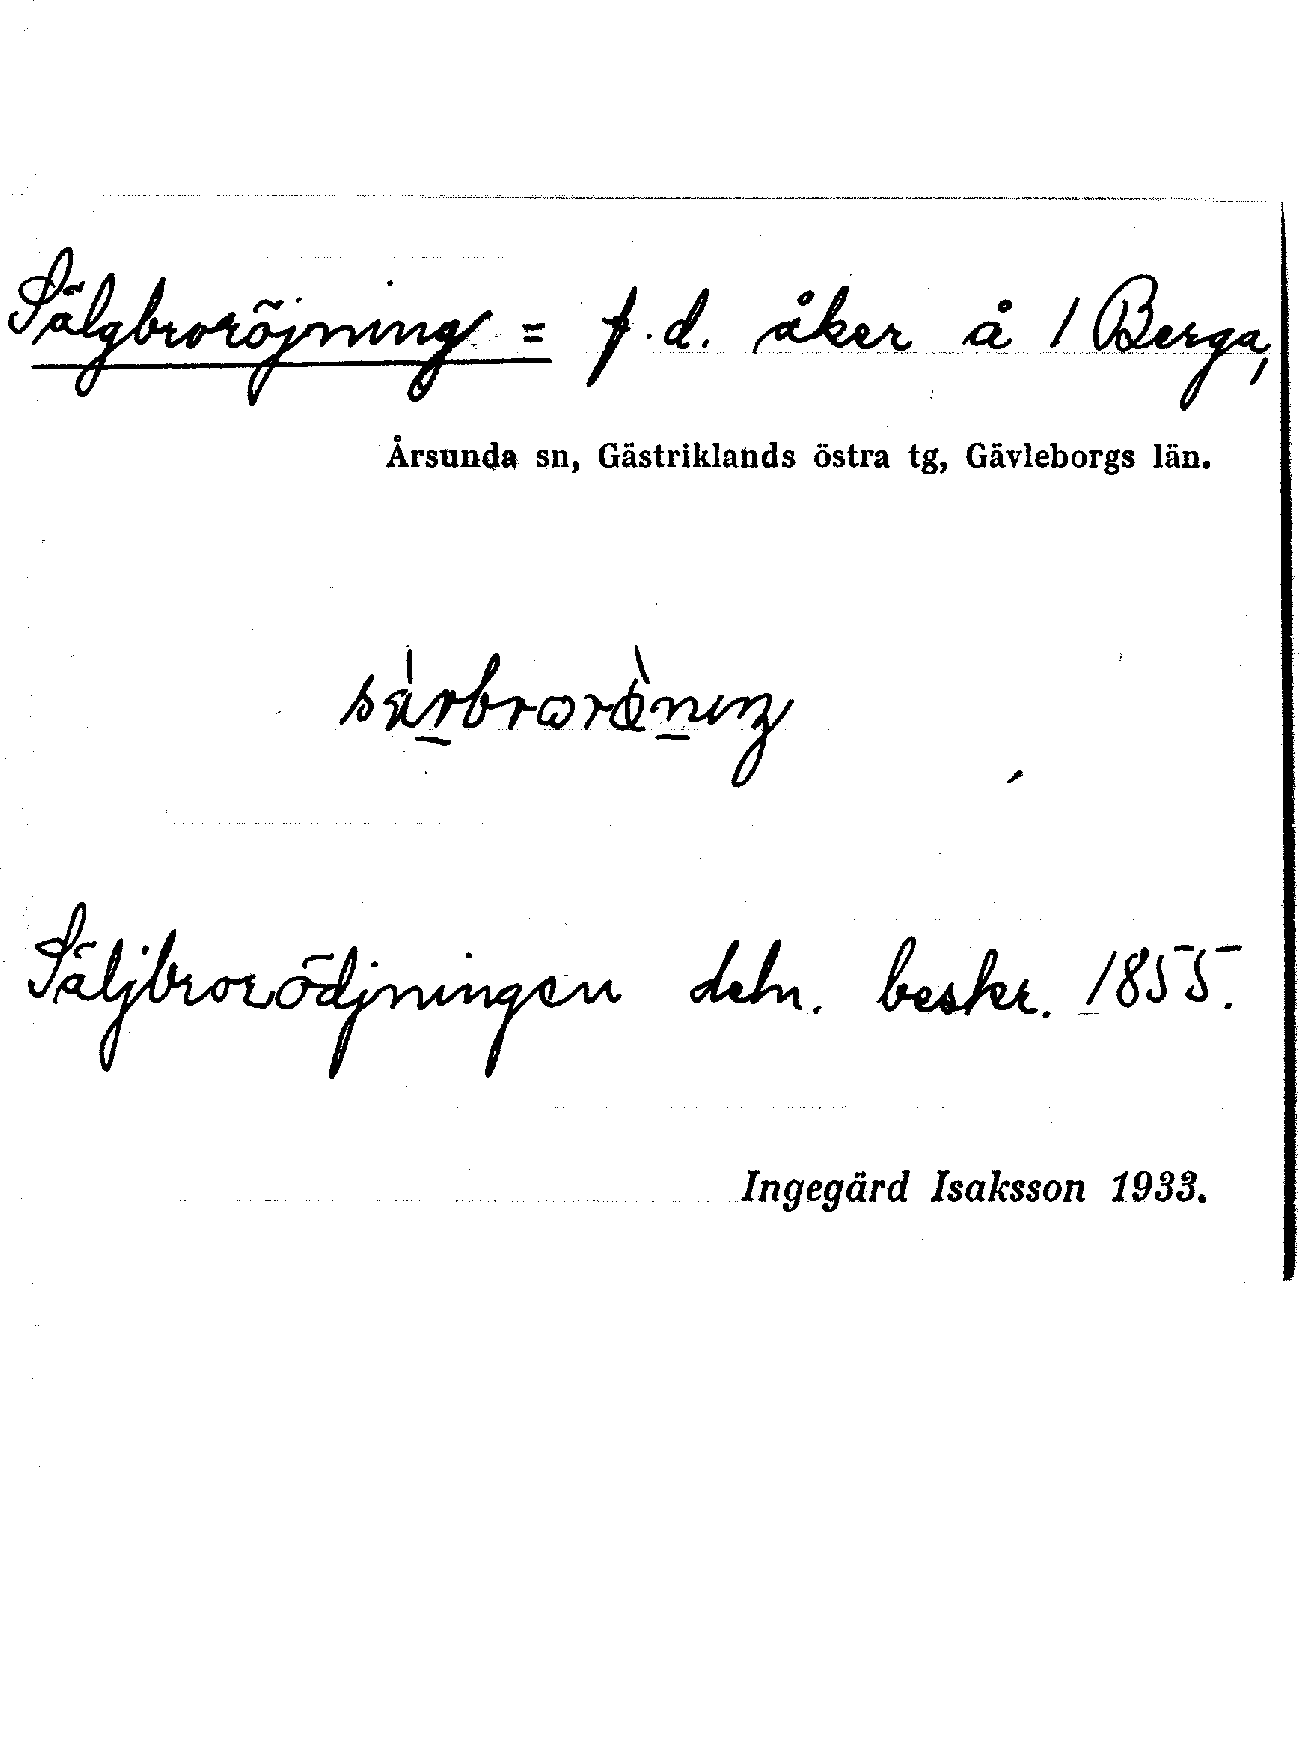 Sälgbroröjning = f.d. åker å 1 Berga,
Årsunda sn, Gästriklands östra tg, Gävleborgs län.
Säljbrorödjningen deln. beskr. 1855.
Ingegärd Isaksson 1933.